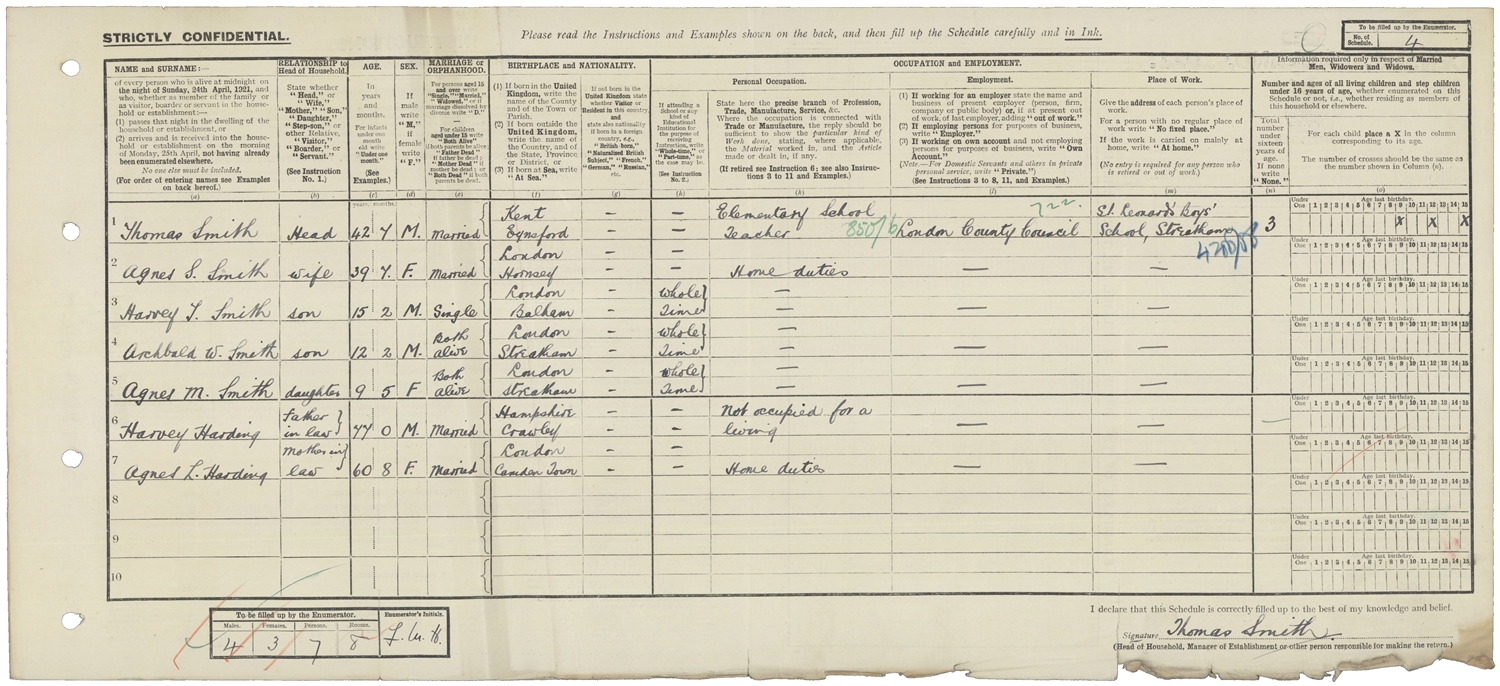 STRICTLY CONFIDENTIAL.
Please read the Instructions and Examples shown on the back, and then fill up the Schedule carefully and in Ink.
To be filled up by the Enumerator.
No. of Schedule. 4
NAME and SURNAME:—
of every person who is alive at midnight on
the night of Sunday, 24th April, 1921, and
who, whether as member of the family or
as visitor, boarder or servant in the house-
hold or establishment:—
(1) passes that night in the dwelling of
the household or establishment, or
(2) arrives and is received into the house-
hold or establishment on the morning
of Monday, 25th April, not having already
been enumerated elsewhere.
No one else must be included.
(For order of entering names see Examples
on back hereof.)
(a)
RELATIONSHIP to
Head of Household.
State whether
"Head," or
"Wife,"
"Mother," "Son,"
"Daughter,"
"Step-son," or
other Relative,
"Visitor,"
"Boarder," or
"Servant."
(See Instruction
No. 1.)
(b)
AGE.
In
years
and
months.
For infants
under one
month
old write
"Under one
month"
(See
Examples.)
(c)
SEX.
If
male
write
"M,"
If
female
write
"F."
(d)
MARRIAGE or
ORPHANHOOD.
For persons aged 15
and over write
"Single," "Married,"
"Widowed," or if
marriage dissolved by
divorce write "D."
For children
aged under 15 write
"Both Alive"
if both parents be alive
"Father Dead"
if father be dead;
"Mother Dead" if
mother be dead; or
"Both Dead" if both
parents be dead.
(e)
BIRTHPLACE and NATIONALITY.
(1) If born in the United
Kingdom, write the
name of the County
and of the Town or
Parish.
(2) If born outside the
United Kingdom,
write the name of
the Country, and of
the State, Province
or District, or
(3) If born at Sea, write
"At Sea."
(f)
If not born in the
United Kingdom state
whether Visitor or
Resident in this country,
and
state also nationality
if born in a foreign
country, e.g.,
"British born,"
"Naturalised British
Subject," "French,"
"German," "Russian,"
etc.
(g)
If attending a
School or other
kind of
Educational
Institution for
the purpose of
receiving
Instruction, write
"Whole-time," or
"Part-time," as
the case may be.
(See Instruction
No. 2.)
(h)
OCCUPATION and EMPLOYMENT.
Personal Occupation.
State here the precise branch of Profession,
Trade, Manufacture, Service, &c.
Where the occupation is connected with
Trade or Manufacture, the reply should be
sufficient to show the particular kind of
Work done, stating, where applicable,
the Material worked in and the Article
made or dealt in, if any.
(If retired see Instruction 6; see also Instruc-
tions 3 to 11 and Examples.)
(k)
Employment.
(1) If working for an employer state the name and
business of present employer (person, firm,
company or public body) or, if at present out
of work, of last employer, adding "out of work."
(2) If employing persons for purposes of business,
write "Employer."
(3) If working on own account and not employing
persons for purposes of business, write "Own
Account."
(Note.—For Domestic Servants and others in private
personal service, write "Private.")
(See Instructions 3 to 8, 11, and Examples.)
(l)
Place of Work.
Give the address of each person's place of
work.
For a person with no regular place of
work write "No fixed place."
If the work is carried on mainly at
home, write "At home."
(No entry is required for any person who
is retired or out of work.)
(m)
Information required only in respect of Married
Men, Widowers and Widows.
Number and ages of all living children and step children
under 16 years of age, whether enumerated on this
Schedule or not, i.e., whether residing as members of
this household or elsewhere.
Total
number
under
sixteen
years of
age.
If none
write
"None."
(n)
For each child place a X in the column
corresponding to its age.
The number of crosses should be the same as
the number shown in Column (n).
(o)
years. months.
1 Thomas Smith Head 42 7 M. Married Kent Eynsford — — Elementary School Teacher 850/6 London County Council 722. St. Leonard's Boys' School, Streatham 3 X X X
2 Agnes S. Smith wife 39 7. F. Married London Hornsey — — Home duties — —
3 Harvey T. Smith son 15 2 M. Single London Balham — Whole Time — — —
4 Archbald W. Smith son 12 2 M. Both alive London Streatham — whole Time — — —
5 Agnes M. Smith daughter 9 5 F Both alive London Streatham — whole Time — — —
6 Harvey Harding Father in law 77 0 M. Married Hampshire Crawley — — Not occupied for a living
7 Agnes L. Harding Mother in law 60 8 F. Married London Camden Town — — Home duties — —
8
9
10
Under One Age last birthday. 1 2 3 4 5 6 7 8 9 10 11 12 13 14 15
To be filled up by the Enumerator.
Males. Females. Persons. Rooms.
4 3 7 8
Enumerator's Initials.
I declare that this Schedule is correctly filled up to the best of my knowledge and belief.
Signature Thomas Smith
(Head of Household, Manager of Establishment or other person responsible for making the return.)